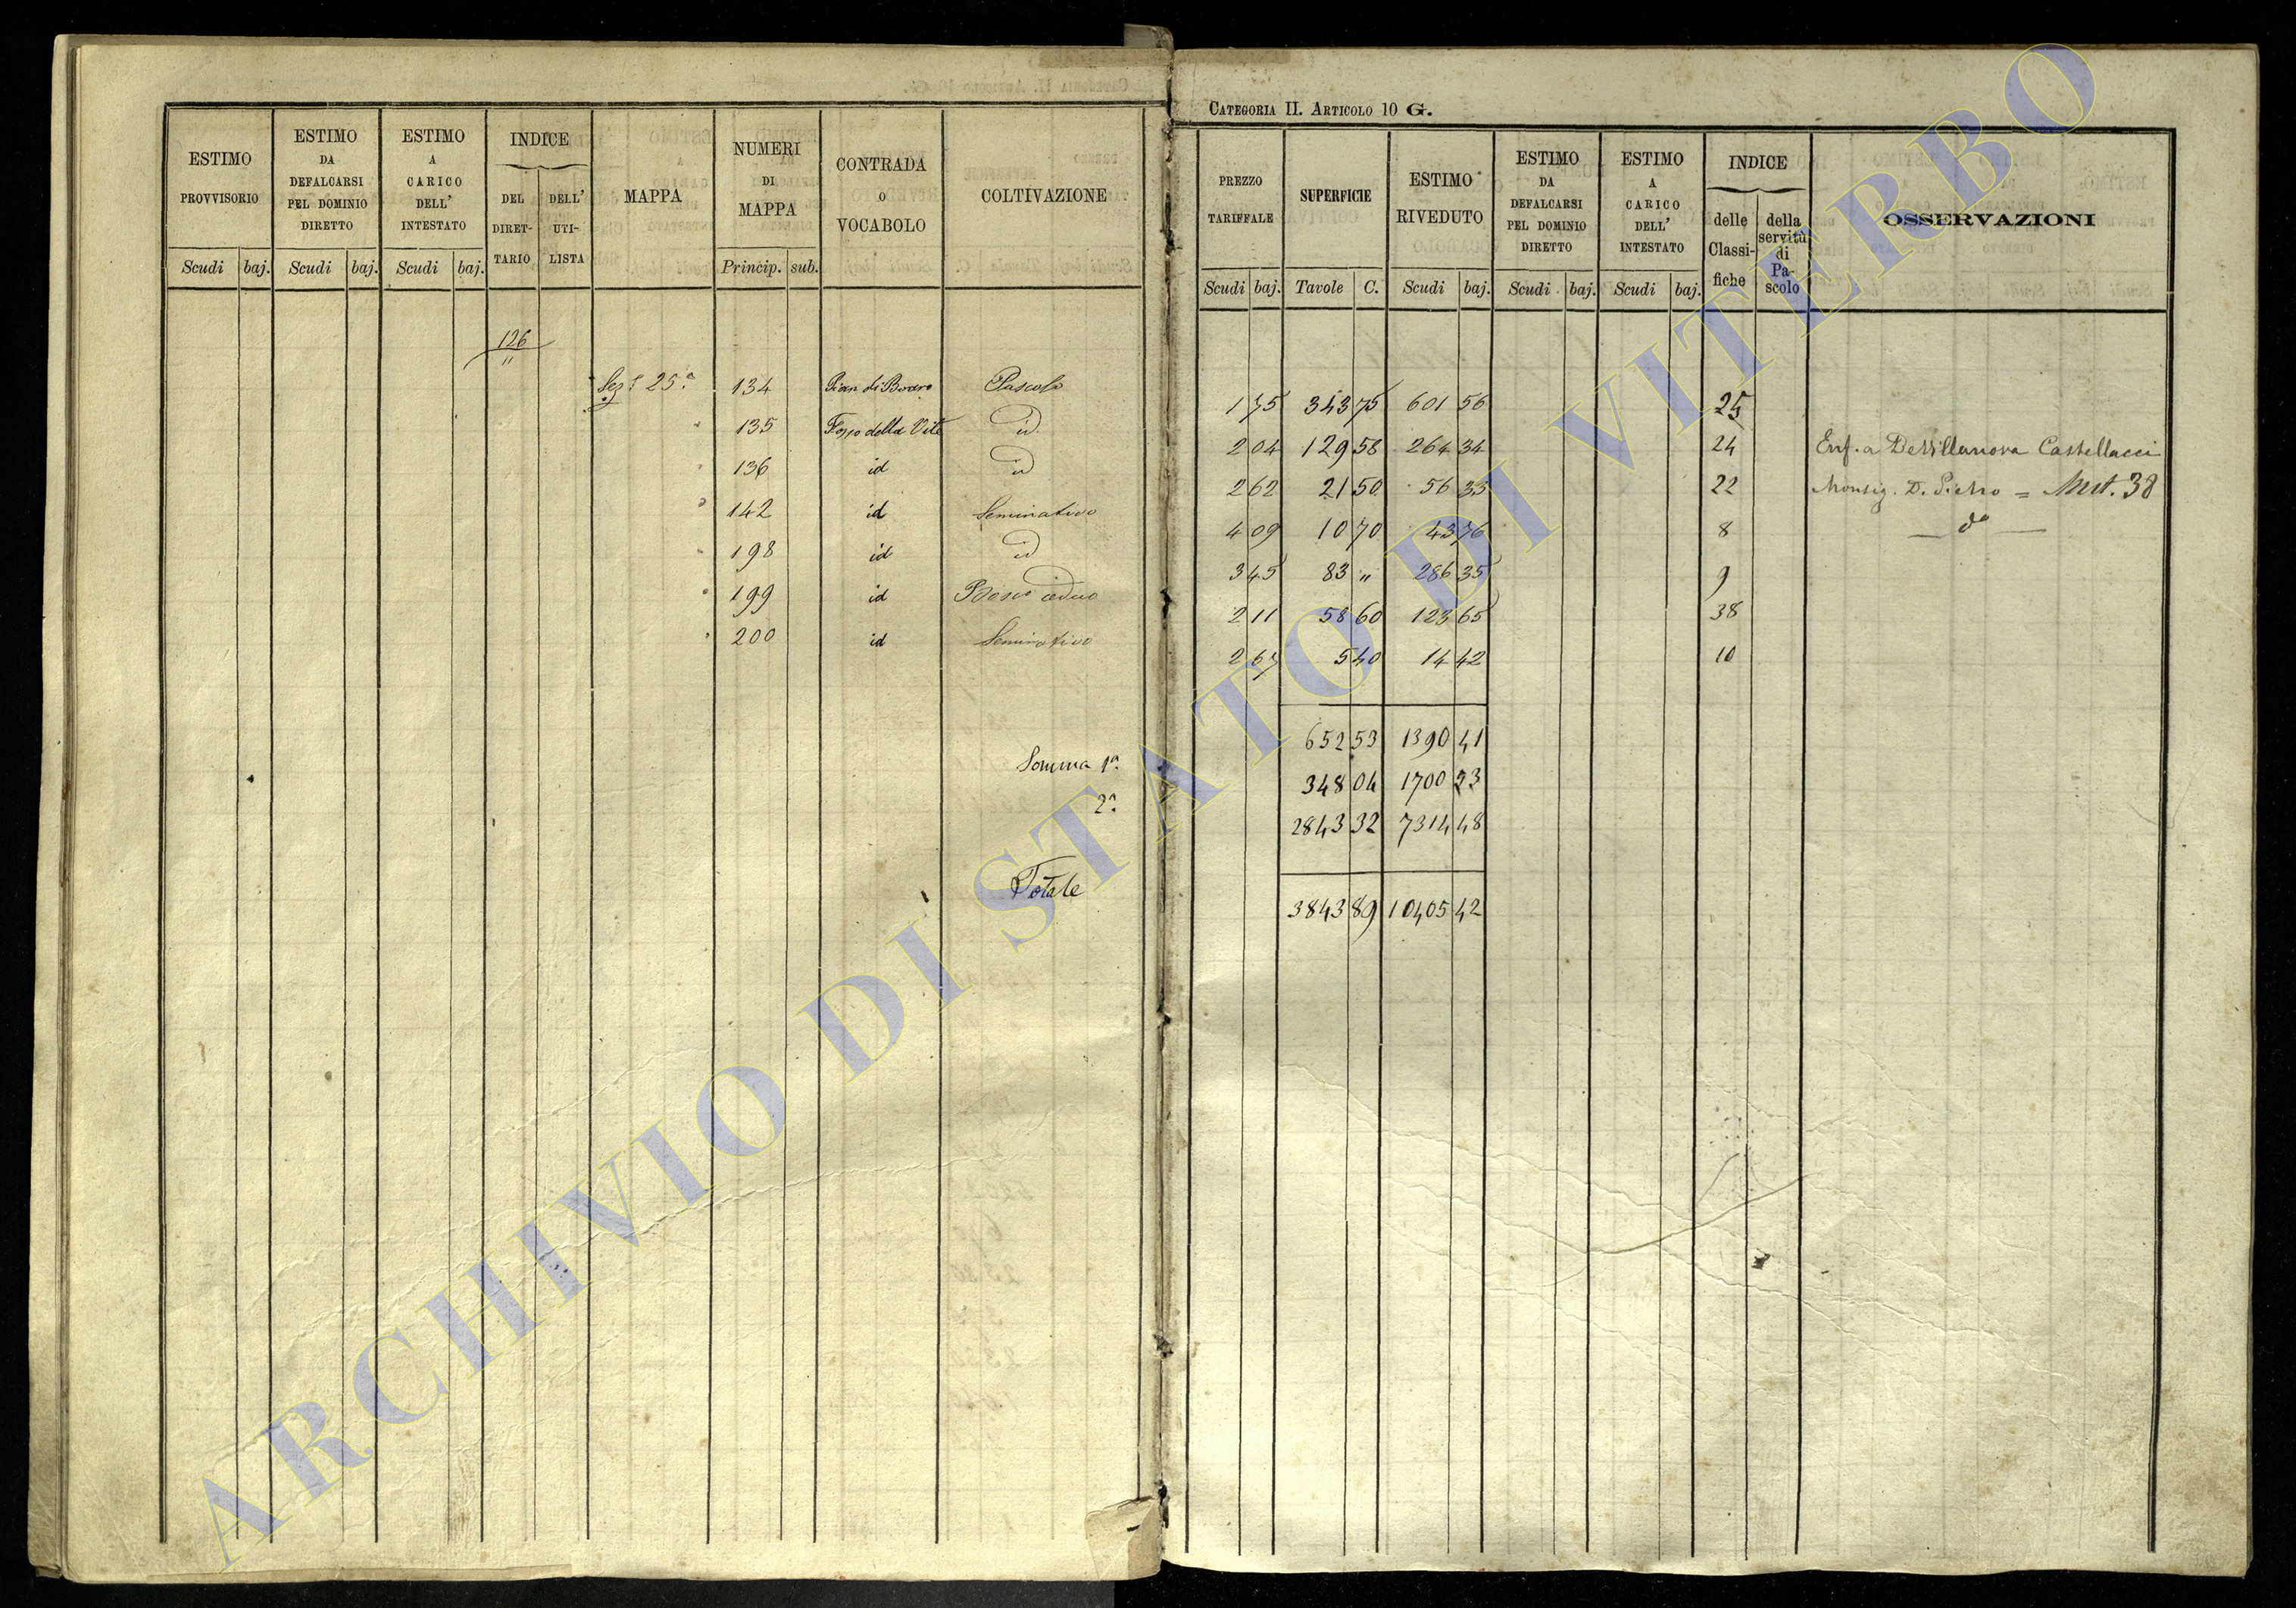 ESTIMO PROVVISORIO
Scudi baj.
ESTIMO DA DEFALCARSI PEL DOMINIO DIRETTO
Scudi baj.
ESTIMO A CARICO DELL' INTESTATO
Scudi baj.
INDICE
DEL DIRET-TARIO
DELL' UTI-LISTA
MAPPA
NUMERI DI MAPPA
Princip. sub.
CONTRADA o VOCABOLO
COLTIVAZIONE
126
"
25ª 134 Pian di Pascolo
135 Fosso della Vite id
136 id id
142 id Seminativo
198 id id
199 id Bosco ceduo
200 id Seminativo
Somma 1ª
2ª
Totale
CATEGORIA II. ARTICOLO 10 G.
PREZZO TARIFFALE
Scudi baj.
SUPERFICIE
Tavole C.
ESTIMO RIVEDUTO
Scudi baj.
ESTIMO DA DEFALCARSI PEL DOMINIO DIRETTO
Scudi baj.
ESTIMO A CARICO DELL' INTESTATO
Scudi baj.
INDICE
delle Classi-fiche
della servitù di Pa-scolo
OSSERVAZIONI
1 75 343 75 601 56 25
2 04 129 58 264 34 24 Enf. a Castellacci
2 62 21 50 56 33 22 Monsig. D. Pietro = 38
4 09 10 70 43 76 8 dº
3 45 83 " 286 35 9
2 11 58 60 123 65 38
2 67 5 40 14 42 10
652 53 1390 41
348 04 1700 23
2843 32 7314 48
3843 89 10405 42
ARCHIVIO DI STATO DI VITERBO